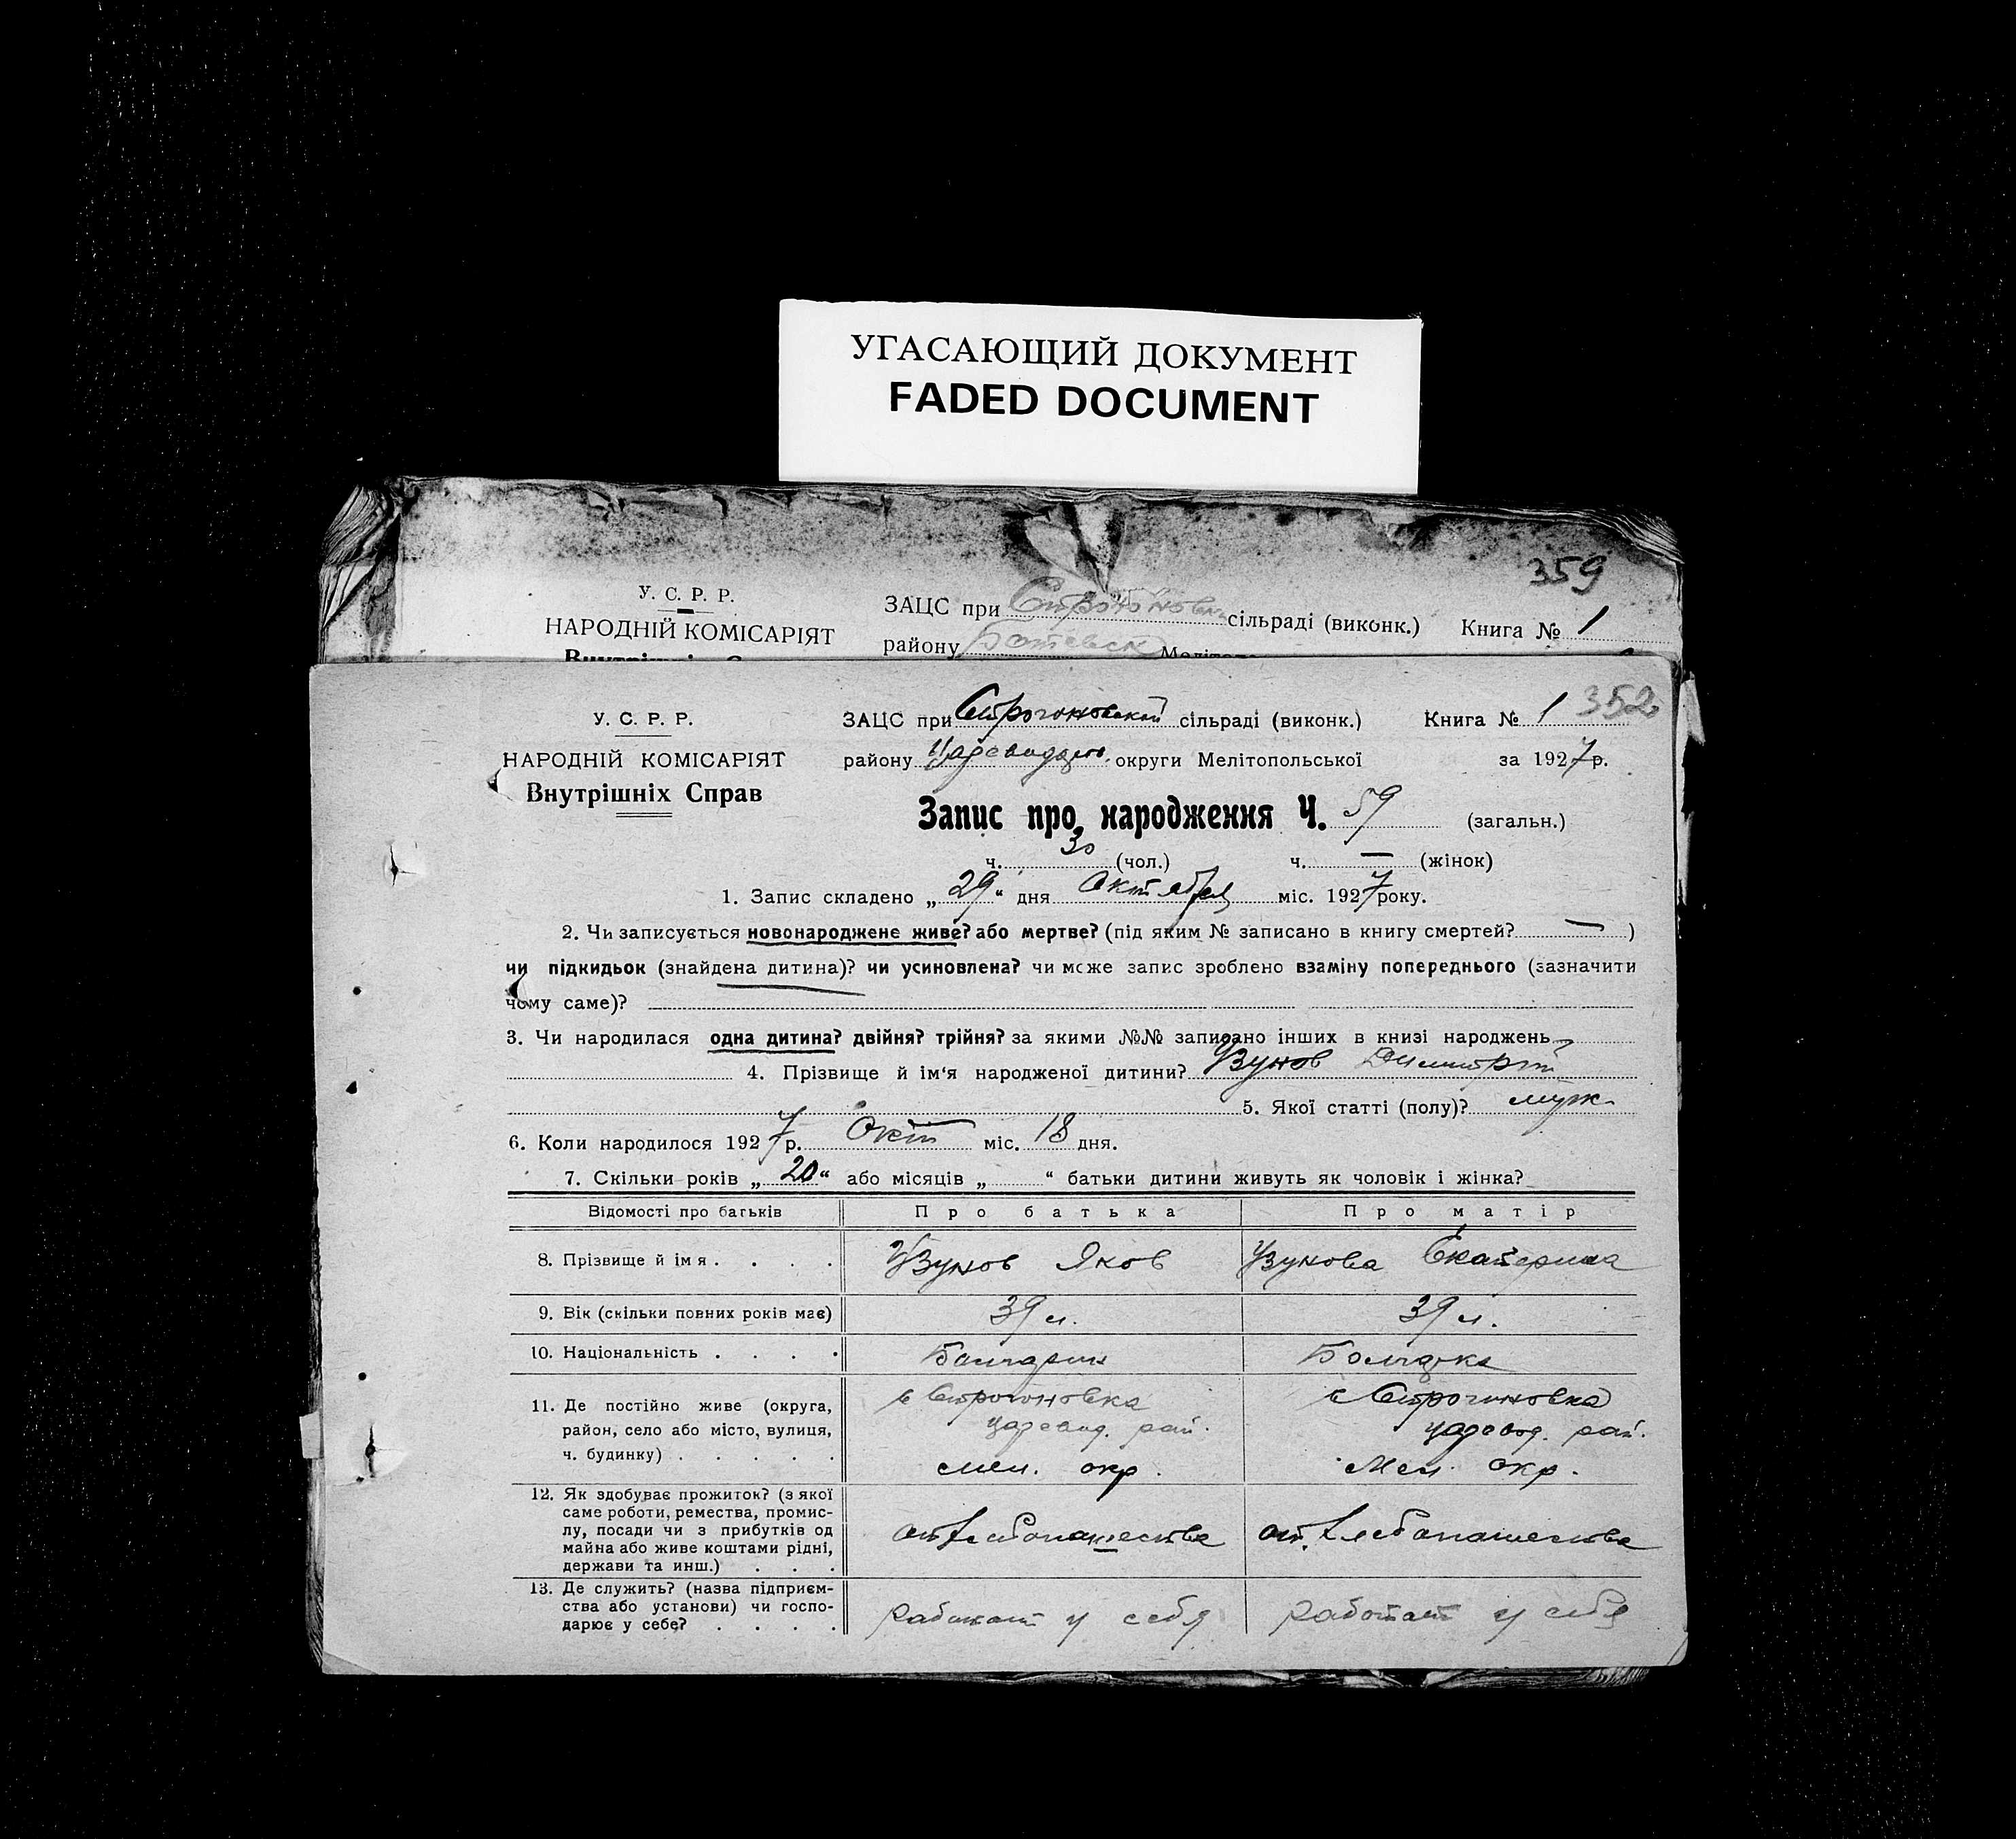 УГАСАЮЩИЙ ДОКУМЕНТ
FADED DOCUMENT
359
У. С. Р. Р.
НАРОДНІЙ КОМІСАРІЯТ
ЗАЦС при Строгоновск сільраді (виконк.) Книга № 1
району Ботевск
У. С. Р. Р.
НАРОДНІЙ КОМІСАРІЯТ
Внутрішніх Справ
ЗАЦС при Строгоновской сільраді (виконк.) Книга № 1 352
району округи Мелітопольської за 1927 р.
Запис про народження Ч. 59 (загальн.)
ч. 30 (чол.) ч. — (жінок)
1. Запис складено „ 29 “ дня Октября міс. 1927 року.
2. Чи записується новонароджене живе? або мертве? (під яким № записано в книгу смертей? — )
чи підкидьок (знайдена дитина)? чи усиновлена? чи може запис зроблено взаміну попереднього (зазначити
чому саме)?
3. Чи народилася одна дитина? двійня? трійня? за якими №№ записано інших в книзі народжень?
4. Прізвище й ім‘я народженої дитини? Узунов Димитрий
5. Якої статті (полу)? муж.
6. Коли народилося 1927 р. Окт міс. 18 дня.
7. Скільки років „ 20 “ або місяців „ “ батьки дитини живуть як чоловік і жінка?
Відомості про батьків Про батька Про матір
8. Прізвище й ім я . . . . Узунов Яков Узунова Екатерина
9. Вік (скільки повних років має) 39 л. 39 л.
10. Національність . . . . Болгарин Болгарка
11. Де постійно живе (округа,
район, село або місто, вулиця,
ч. будинку) . . . . .
с Строгоновка
царевод. рай.
мел. окр.
с Строгоновка
царевод. рай.
Мел. окр.
12. Як здобуває прожиток? (з якої
саме роботи, ремества, промис-
лу, посади чи з прибутків од
майна або живе коштами рідні,
держави та инш.) . . .
от хлебопашества от хлебопашества
13. Де служить? (назва підприєм-
ства або установи) чи госпо-
дарює у себе? . . . .
работает у себя работает у себя